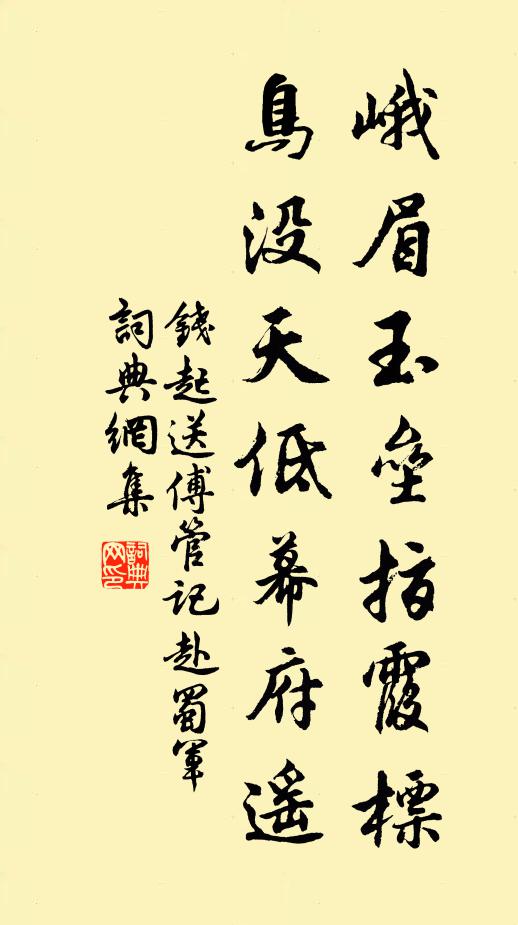 峨眉玉壘指霞標
鳥没天低幕府遥
錢起送傅管記赴蜀軍
詞典網集
詞典網印